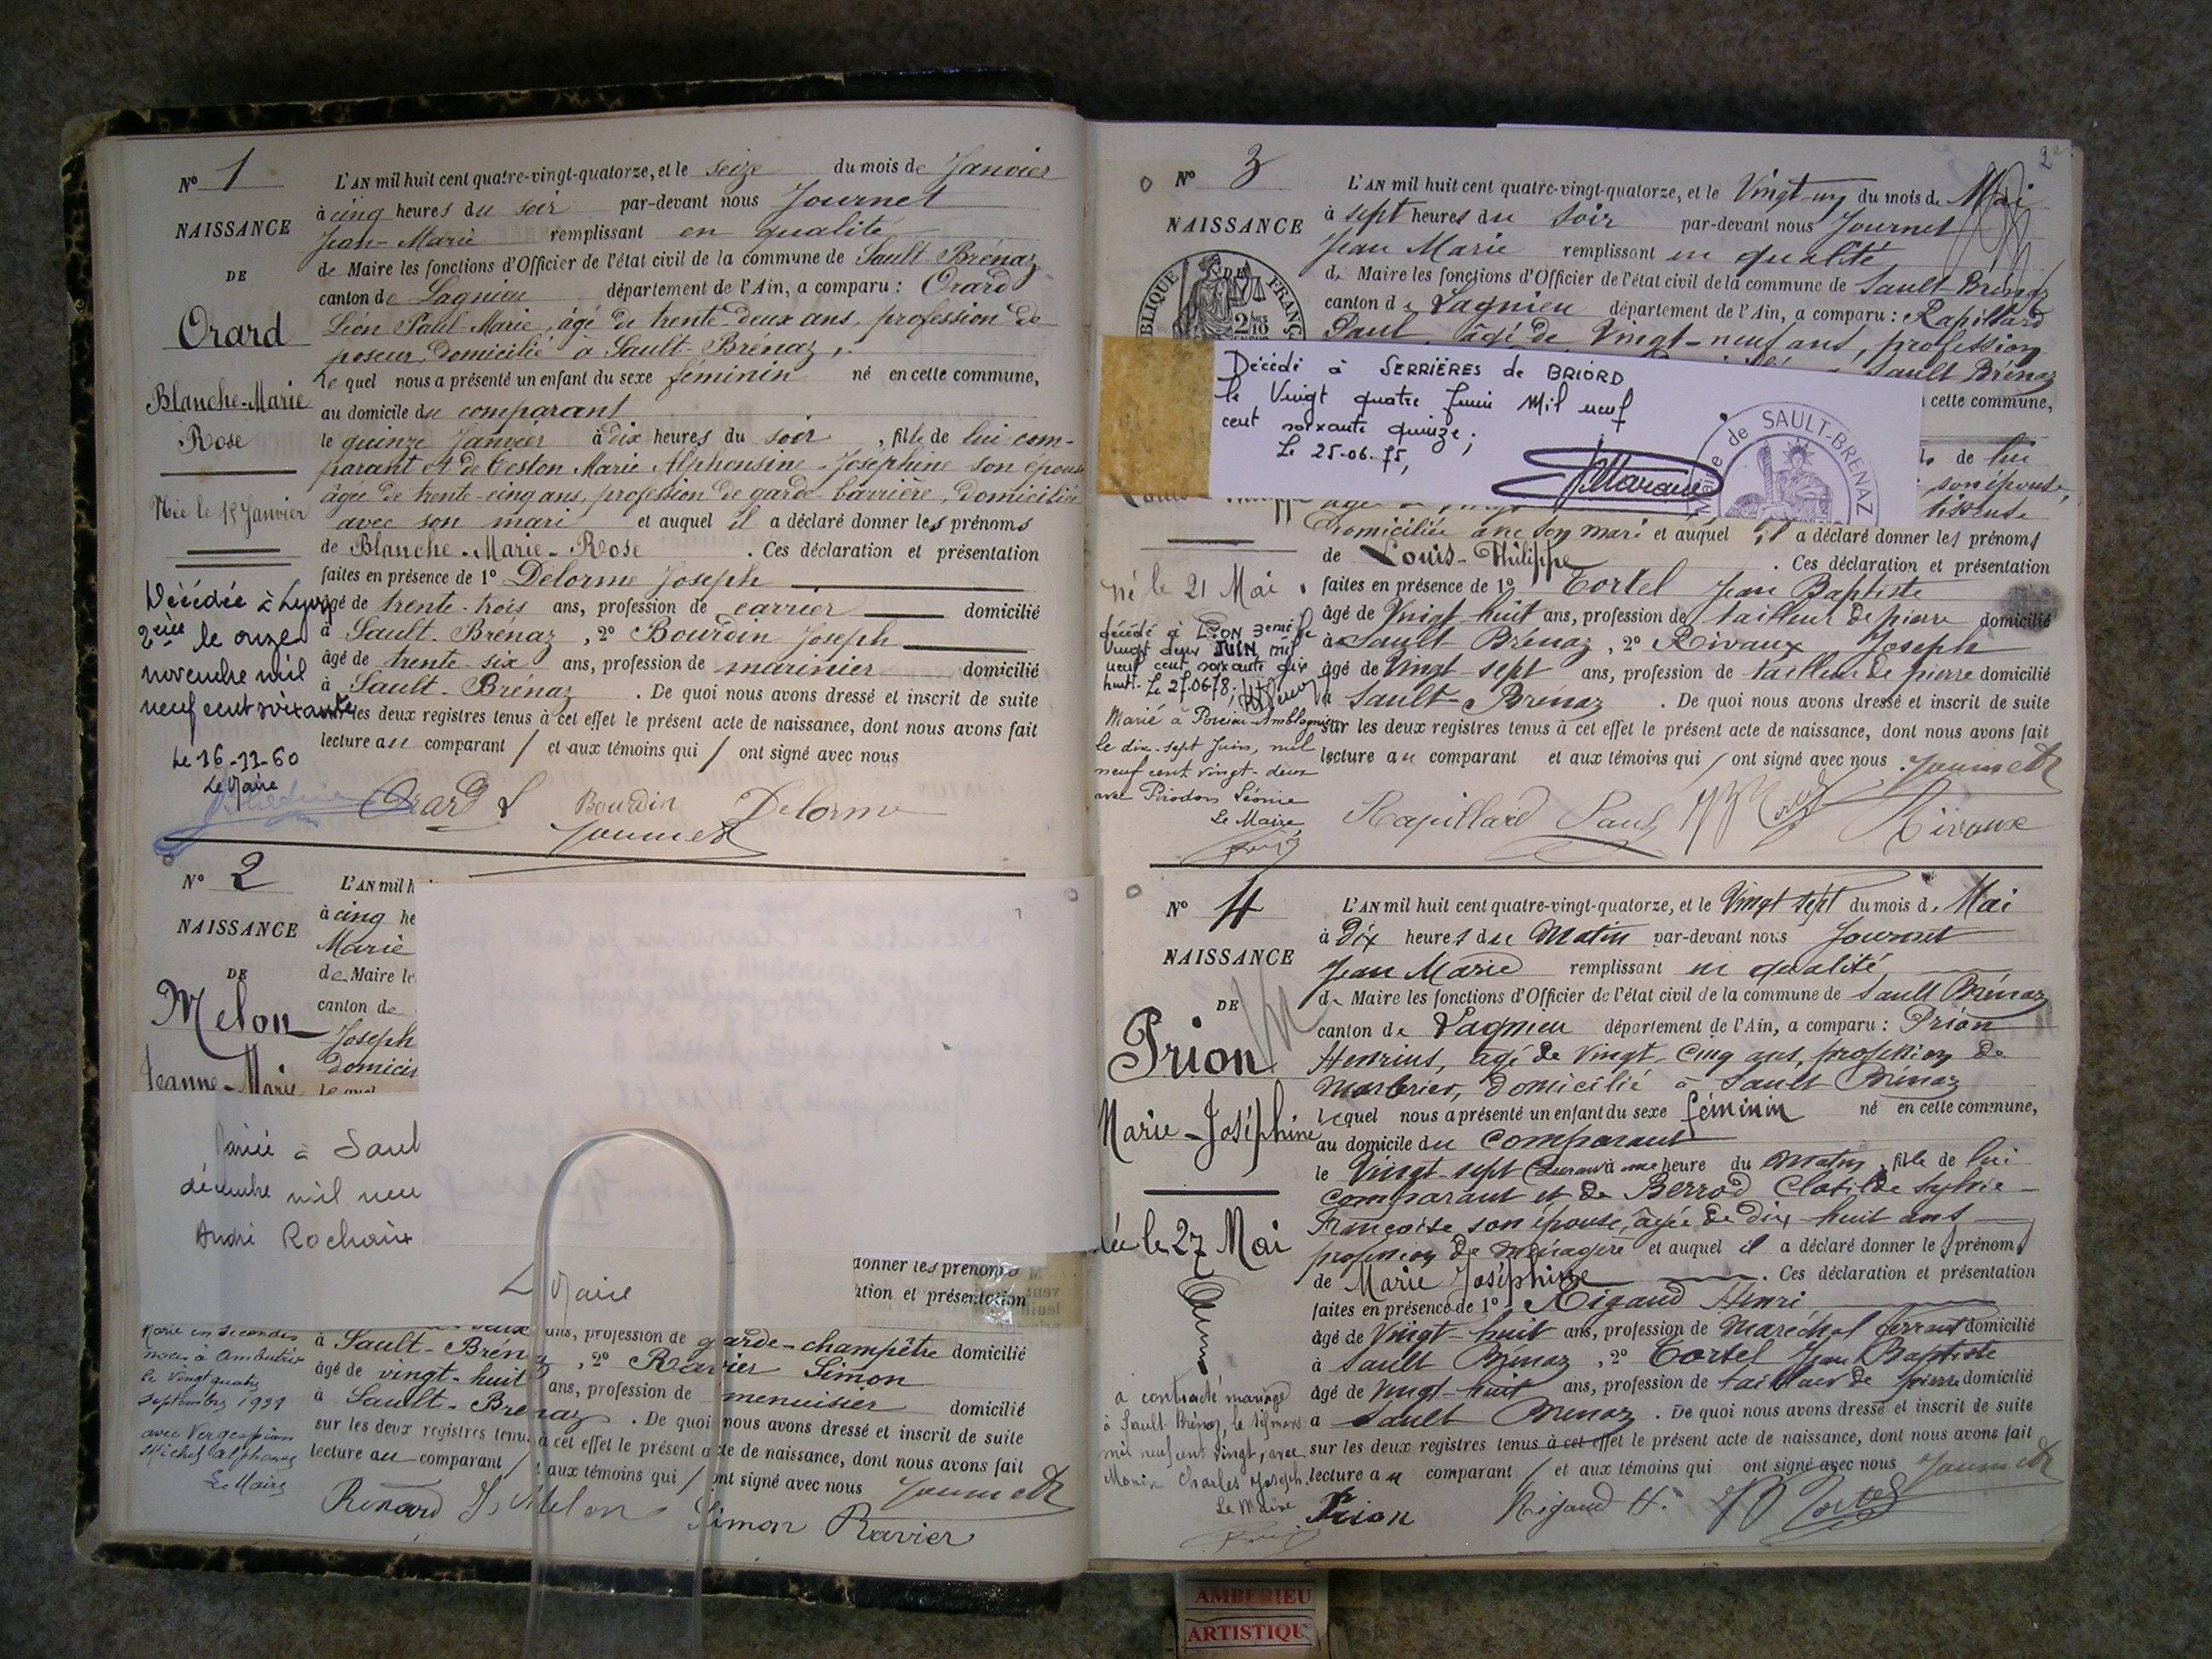 N° 1
NAISSANCE
DE
Orard
Blanche-Marie
Rose
Née le 15 Janvier
Décédée à Lyon
2ème le onze
novembre mil
neuf cent soixante
Le 16-11-60
Le Maire
L'AN mil huit cent quatre-vingt-quatorze, et le seize du mois de Janvier
à cinq heures du soir par-devant nous Journet
Jean-Marie remplissant en qualité
de Maire les fonctions d'Officier de l'état civil de la commune de Sault-Brénaz
canton de Lagnieu département de l'Ain, a comparu : Orard
Léon Paul Marie, âgé de trente-deux ans, profession de
poseur, domicilié à Sault-Brénaz,
lequel nous a présenté un enfant du sexe féminin né en cette commune,
au domicile du comparant
le quinze Janvier à dix heures du soir, fille de lui com-
parant et de Teston Marie Alphonsine-Joséphine son épouse
âgée de trente-cinq ans, profession de garde-barrière, domiciliée
avec son mari et auquel il a déclaré donner les prénoms
de Blanche-Marie-Rose. Ces déclaration et présentation
faites en présence de 1° Delorme Joseph
âgé de trente-trois ans, profession de carrier domicilié
à Sault-Brénaz, 2° Bourdin Joseph
âgé de trente-six ans, profession de marinier domicilié
à Sault-Brénaz. De quoi nous avons dressé et inscrit de suite
sur les deux registres tenus à cet effet le présent acte de naissance, dont nous avons fait
lecture au comparant / et aux témoins qui / ont signé avec nous
Orard L Bourdin Delorme
Journet
N° 2
NAISSANCE
DE
Melon
Jeanne-Marie
L'AN mil h
à cinq he
Marie
de Maire le
canton de
Joseph
domici
lequel
Mariée à Saul
décembre mil neu
André Rochaix
Le Maire
donner les prénoms
ation et présentation
Marié en secondes
noces à Ambutrix
le vingt quatre
septembre 1939
avec
Michel Alphonse
Le Maire
ans, profession de garde-champêtre domicilié
à Sault-Brénaz, 2° Ravier Simon
âgé de vingt-huit ans, profession de menuisier domicilié
à Sault-Brénaz. De quoi nous avons dressé et inscrit de suite
sur les deux registres tenus à cet effet le présent acte de naissance, dont nous avons fait
lecture au comparant / et aux témoins qui / ont signé avec nous
Renard J. Melon Journet
Simon Ravier
2e
N° 3
NAISSANCE
BLIQUE FRANÇ
né le 21 Mai
décédé à LYON 3eme le
vingt deux JUIN mil
neuf cent soixante dix
huit. Le 27.06.78;
Marié à
le dix-sept Juin, mil
neuf cent vingt-deux
avec Pirodon Léonie
Le Maire,
L'AN mil huit cent quatre-vingt-quatorze, et le Vingt-un du mois de Mai
à sept heures du soir par-devant nous Journet
Jean Marie remplissant en qualité
de Maire les fonctions d'Officier de l'état civil de la commune de Sault-Brénaz
canton de Lagnieu département de l'Ain, a comparu : Rapillard
Paul, âgé de Vingt-neuf ans, profession
Sault Brénaz
cette commune,
Décédé à SERRIÈRES de BRIORD
le Vingt quatre Juin Mil neuf
cent soixante quinze;
Le 25-06-75,
Mairie de SAULT-BRENAZ
de lui
son épouse,
tisseuse
domiciliée avec son mari et auquel il a déclaré donner les prénoms
de Louis-Philippe. Ces déclaration et présentation
faites en présence de 1° Tortel Jean Baptiste
âgé de Vingt huit ans, profession de tailleur de pierre domicilié
à Sault Brénaz, 2° Rivaux Joseph
âgé de Vingt sept ans, profession de tailleur de pierre domicilié
à Sault-Brénaz. De quoi nous avons dressé et inscrit de suite
sur les deux registres tenus à cet effet le présent acte de naissance, dont nous avons fait
lecture au comparant et aux témoins qui / ont signé avec nous. Journet
Rapillard Paul Rivaux
N° 4
NAISSANCE
DE
Prion
Marie-Joséphine
née le 27 Mai
a contracté mariage
à Sault-Brénaz, le six mars
mil neuf cent vingt, avec
Monin Charles Joseph.
Le Maire
L'AN mil huit cent quatre-vingt-quatorze, et le Vingt sept du mois de Mai
à Dix heures du Matin par-devant nous Journet
Jean Marie remplissant en qualité
de Maire les fonctions d'Officier de l'état civil de la commune de Sault Brénaz
canton de Lagnieu département de l'Ain, a comparu : Prion
Henrius, âgé de Vingt-Cinq ans, profession de
Marbrier, domicilié à Sault Brénaz
lequel nous a présenté un enfant du sexe féminin né en cette commune,
au domicile du Comparant
le Vingt-sept Courant à une heure du Matin, fille de lui
Comparant et de Berrod Clotilde Sylvie
Françoise son épouse, âgée de dix-huit ans
profession de ménagère et auquel il a déclaré donner les prénoms
de Marie Joséphine. Ces déclaration et présentation
faites en présence de 1° Rigaud Henri
âgé de Vingt-huit ans, profession de Maréchal ferrant domicilié
à Sault Brénaz, 2° Tortel Jean Baptiste
âgé de Vingt-huit ans, profession de tailleur de pierre domicilié
à Sault Brénaz. De quoi nous avons dressé et inscrit de suite
sur les deux registres tenus à cet effet le présent acte de naissance, dont nous avons fait
lecture au comparant / et aux témoins qui ont signé avec nous Journet
Prion Rigaud H. JB Tortel
AMBERIEU
ARTISTIQU